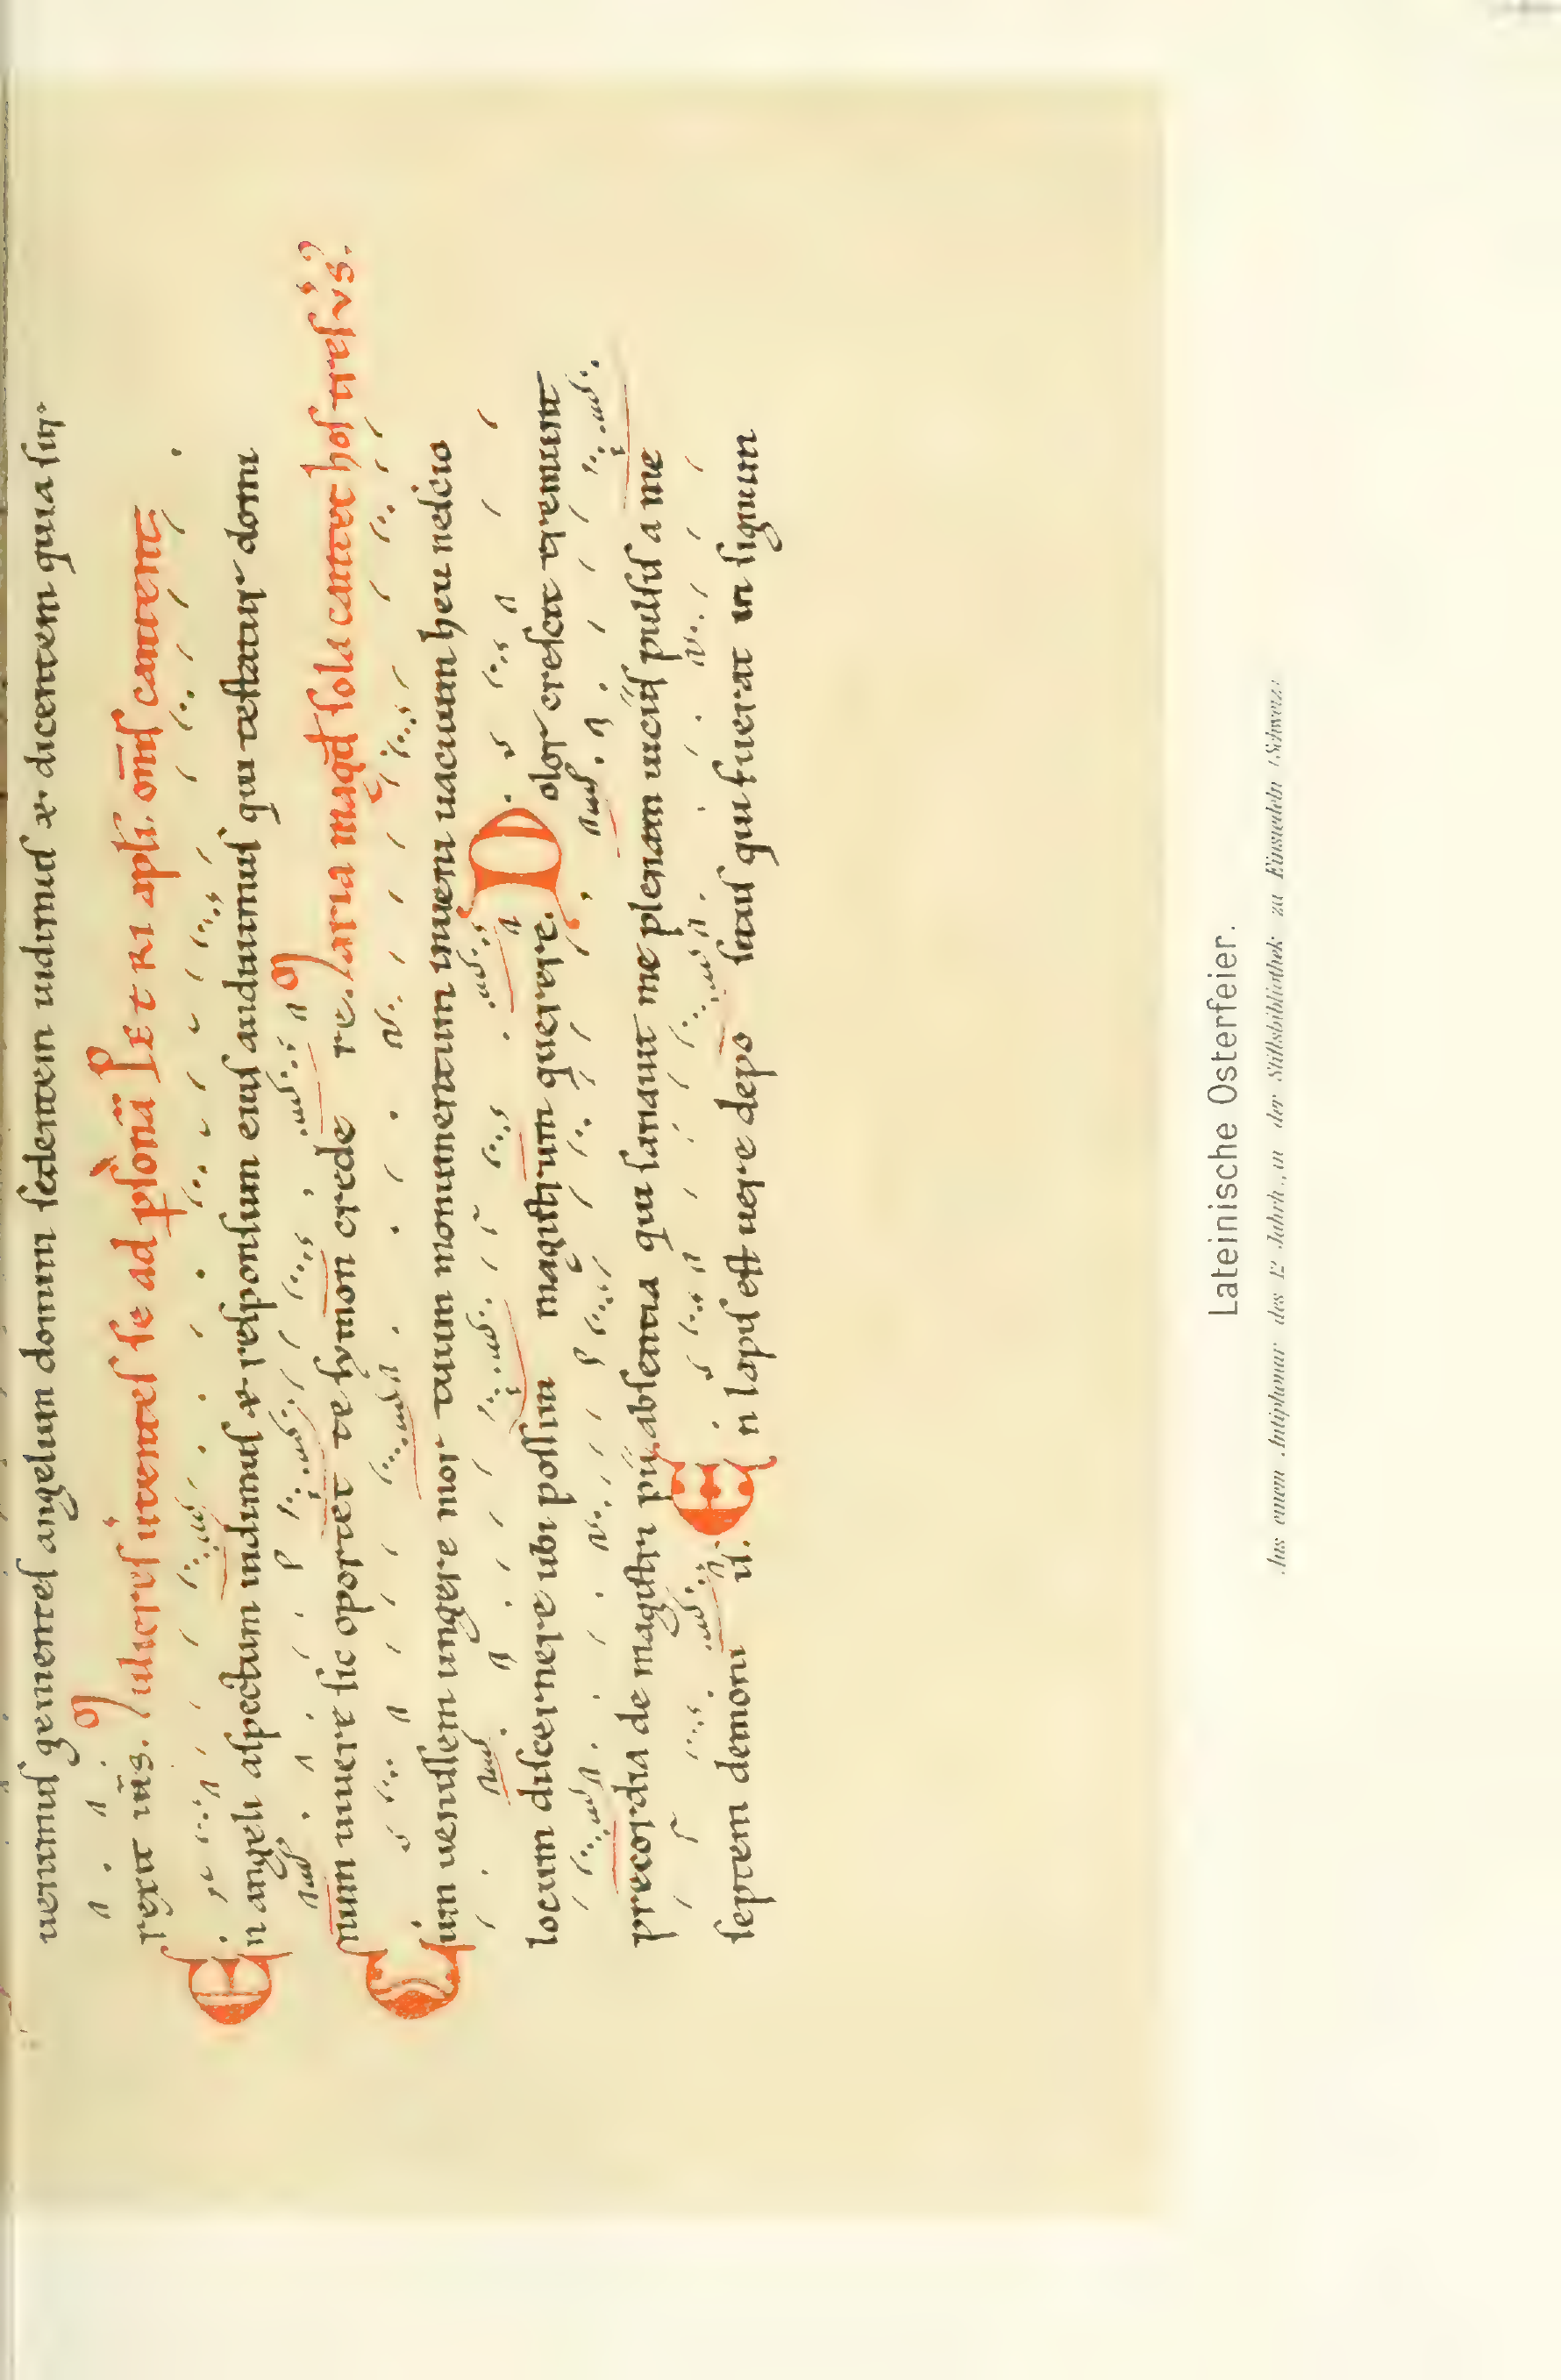 uenimus gementes angelum domini sedentem uidimus & dicentem quia sur
rexit iħs. Mulieres uertentes se ad psonā PETRI apłi. om̄s cantent
En angeli aspectum uidimus & responsum eius audiuimus qui testatur domi
num uiuere sic oportet te symon crede re. Maria magd̄ sola cantet hos tres v̄s.
Cum uenissem ungere mortuum monumentum inueni uacuum heu nescio
locum discernere ubi possim magistrum querere. Dolor crescit tremunt
precordia de magistri pii absentia qui sanauit me plenam uiciis pulsis a me
septem demoniis. En lapis est uere depositus qui fuerat in signum
Lateinische Osterfeier.
Aus einem Antiphonar des 12 Jahrh., in der Stiftsbibliothek zu Einsiedeln (Schweiz)